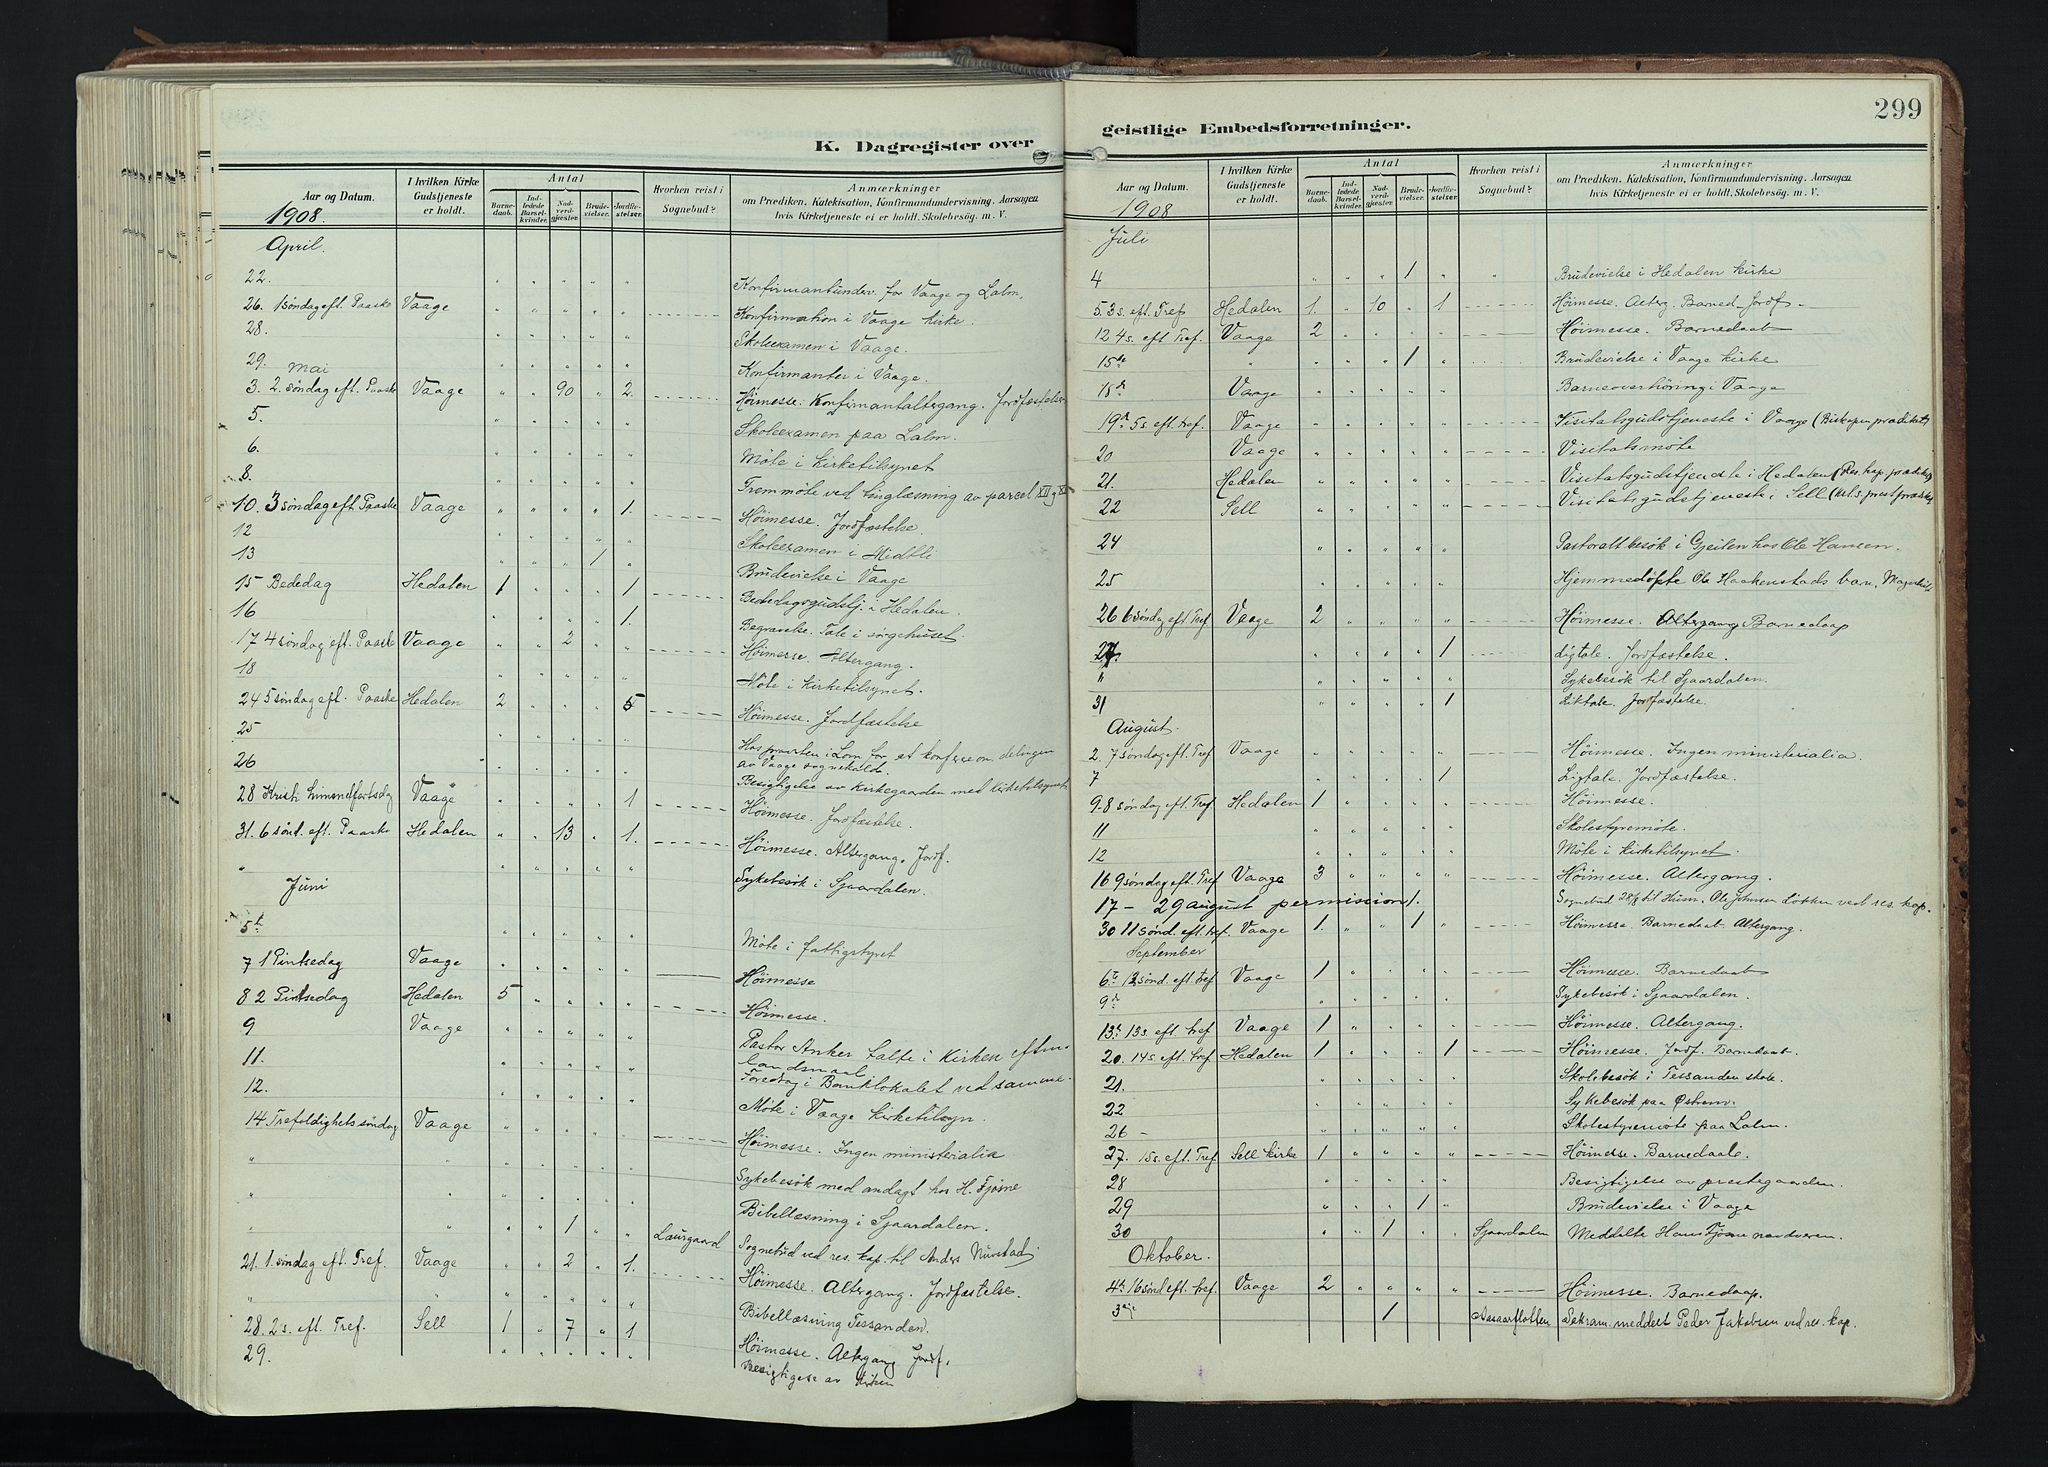 K. Dagregister over
Aar og Datum.
I hvilken Kirke Gudstjeneste er holdt.
Antal
Barnedaab.
Indledede Barselkvinder.
Nadverdgjæster.
Brudevielser.
Jordfæstelser.
Hvorhen reist i Sognebud?
Anmærkninger
om Prædiken. Katekisation. Konfirmandundervisning. Aarsagen
hvis Kirketjeneste ei er holdt. Skolebesøg. m. V.
1908.
April.
22. Konfirmantunderv. for Vaage og Lalm.
26. 1 søndag eft. Paaske Vaage Konfirmation i Vaage kirke.
28. Skoleexamen i Vaage.
29. Konfirmanter i Vaage.
Mai
3. 2. søndag eft. Paaske Vaage 90 2. Høimesse. Konfirmantaltergang. Jordfæstelser
5. Skoleexamen paa Lalm.
6. Møte i kirketilsynet
8. Fremmøte ved av parcel
10. 3 søndag eft Paaske Vaage 1. Høimesse. Jordfæstelse
12 Skoleexamen i Midtli
13 1 Brudevielse i Vaage
15 Bededag Hedalen 1 1 Bededagsgudstj. i Hedalen.
16 1. Begravelse. Tale i sørgehuset.
17 4 søndag eft. Paaske Vaage 2 Høimesse. Altergang.
18 Møte i kirketilsynet.
24 5 søndag eft. Paaske Hedalen 2 5 Høimesse. Jordfæstelse
25 Hos provsten i Lom for at konferere om delingen
av Vaage sognekald.
26 Besigtigelse av kirkegaarden med kirketilsynet
28 Kristi himmelfartsdag Vaage 1 Høimesse. Jordfæstelse.
31. 6 sønd. eft. Paaske Hedalen 13 1. Høimesse. Altergang. Jordf.
" Sykebesøk i Sjaardalen.
Juni
5te Møte i fattigstyret
7 1 Pintsedag Vaage Høimesse
8 2 Pintsedag Hedalen 5 Høimesse.
9 Vaage Pastor Anker talte i kirken eftm.
landsmaal
11. Foredrag i Banklokalet ved samme.
12. Møte i Vaage kirketilsyn.
14 Trefoldighets søndag Vaage Høimesse. Ingen ministerialia
" Sykebesøk med andagt hos H. Fjøsne
" Bibellæsning i Sjaardalen.
" 1 Laurgaard Sognebud ved res. kap. til
21. 1. søndag eft. Tref. Vaage 2 1. Høimesse. Altergang. Jordfæstelse.
" Bibellæsning Tessanden.
28. 2 s. eft. Tref. Sell 1 7 1 Høimesse. Altergang Jordf.
29. Besigtigelse av kirken
299
geistlige Embedsforretninger.
Aar og Datum.
I hvilken Kirke Gudstjeneste er holdt.
Antal
Barnedaab.
Indledede Barselkvinder.
Nadverdgjæster.
Brudevielser.
Jordfæstelser.
Hvorhen reist i Sognebud?
Anmærkninger
om Prædiken. Katekisation. Konfirmandundervisning. Aarsagen
hvis Kirketjeneste ei er holdt. Skolebesøg. m. V.
1908
Juli
4 1 Brudevielse i Hedalen kirke
5. 3 s. eft Tref Hedalen 1. 10 1 Høimesse. Alterg. Barned Jordf
12 4 s. eft Tref. Vaage 2 Høimesse. Barnedaab
15de 1 Brudevielse i Vaage kirke
18de Vaage Barneoverhøring i Vaage
19de 5 s. eft. tref. Vaage Visitatsgudstjeneste i Vaage (Biskopen prædiket)
20 Vaage Visitatsmøte
21. Hedalen Visitatsgudstjeneste i Hedalen (Res. kap. prædiket)
22 Sell Visitatsgudstjeneste i Sell
24 Pastoralt besøk i Gjeilen hos Ole Hansen.
25 Hjemmedøpte Ole Haakenstads barn,
26 6 søndag eft. Tref Vaage 2 Høimesse. Altergang Barnedaap
27. 1 Ligtale. Jordfæstelse.
" Sykebesøk til Sjaardalen.
31 1 Liktale. Jordfæstelse.
August.
2. 7 søndag eft. Tref Vaage Høimesse. Ingen ministerialia.
7 1 Ligtale. Jordfæstelse.
9. 8 søndag eft. Tref Hedalen 1 Høimesse.
11 Skolestyremøte.
12 Møte i kirketilsynet.
16 9 søndag eft. Tref Vaage 3 Høimesse. Altergang.
17 – 29 august permission 1. Sognebud 28/8 til Husm. Ole Johnsen ved res. kap.
30 11 sønd. eft. tref. Vaage 1. 1 Høimesse Barnedaab Altergang.
September
6te 12 sønd. eft. tref Vaage 1 Høimesse. Barnedaab
9de Sykebesøk i Sjaardalen.
13de 13 s. eft. tref Vaage 1 Høimesse. Altergang.
20. 14 s. eft. tref Hedalen 1 1 Høimesse. Jordf. Barnedaab.
21. Skolebesøk i Tessanden skole.
22 Sykebesøk paa
26 – Skolestyremøte paa Lalm.
27. 15 s. eft. Tref. Sell kirke 1 Høimesse. Barnedaab.
28 Besigtigelse av prestegaarden.
29 1 Brudevielse i Vaage
30 1 Sjaardalen Meddelte Hans Fjøsne nadveren.
Oktober.
4de 16 sønd eft. tref. Vaage 2 Høimesse. Barnedaap.
3die 1 Sakram. meddelt Peder Jakobsen ved res. kap.